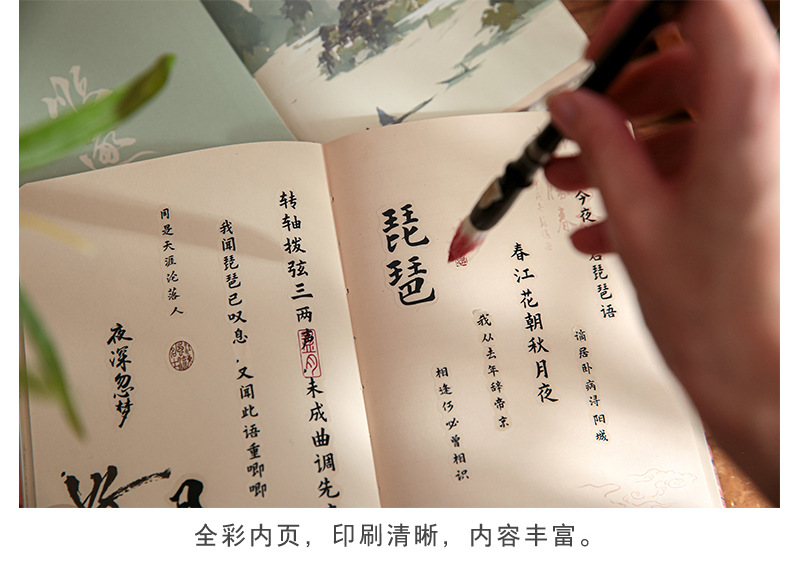 今夜
君琵琶语
谪居卧病浔阳城
春江花朝秋月夜
我从去年辞帝京
琵琶
相逢何必曾相识
转轴拨弦三两
未成曲调先
我闻琵琶已叹息,又闻此语重唧唧
同是天涯沦落人
夜深忽梦
全彩内页，印刷清晰，内容丰富。